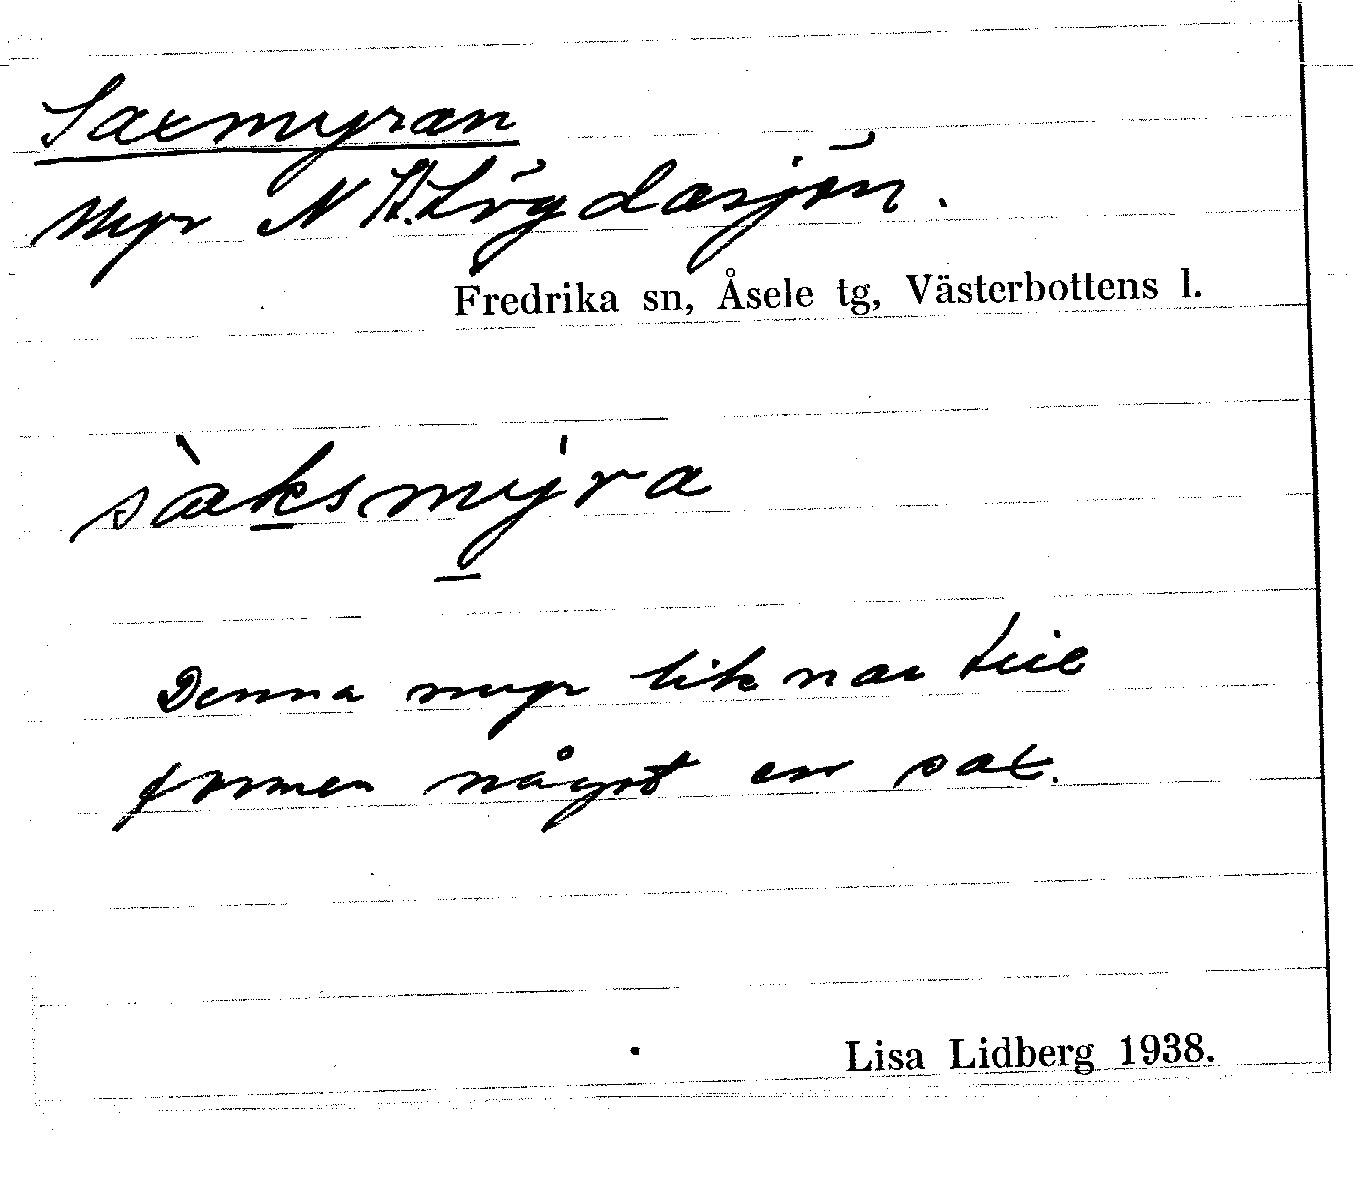 Saxmyran
Myr N St. Lögdasjön.
Fredrika sn, Åsele tg, Västerbottens l.
sàksmyra
Denna myr liknar till
formen något en sax.
Lisa Lidberg 1938.